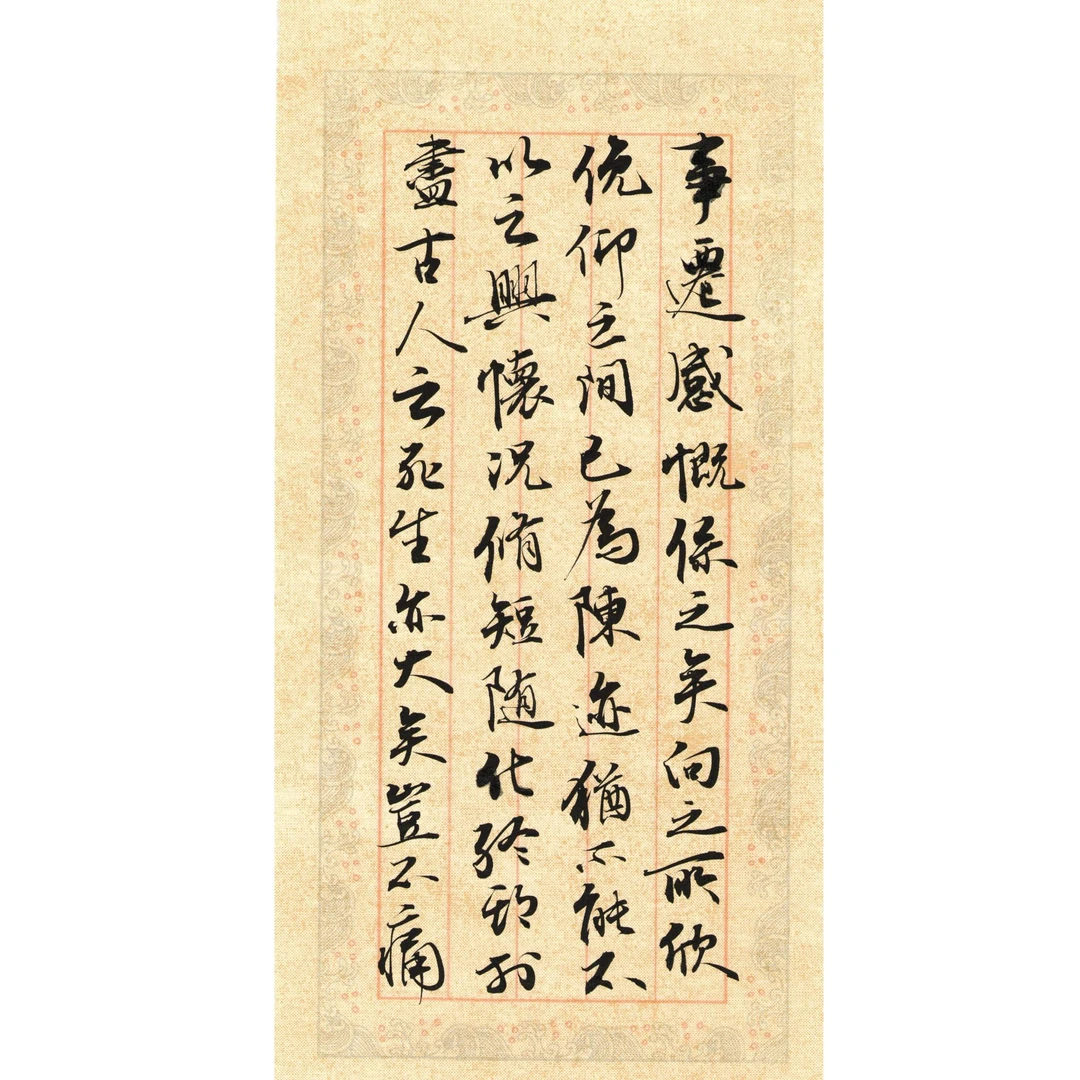 事遷感慨係之矣向之所欣
俛仰之間已為陳迹猶不能不
以之興懷況脩短隨化終期於
盡古人云死生亦大矣豈不痛